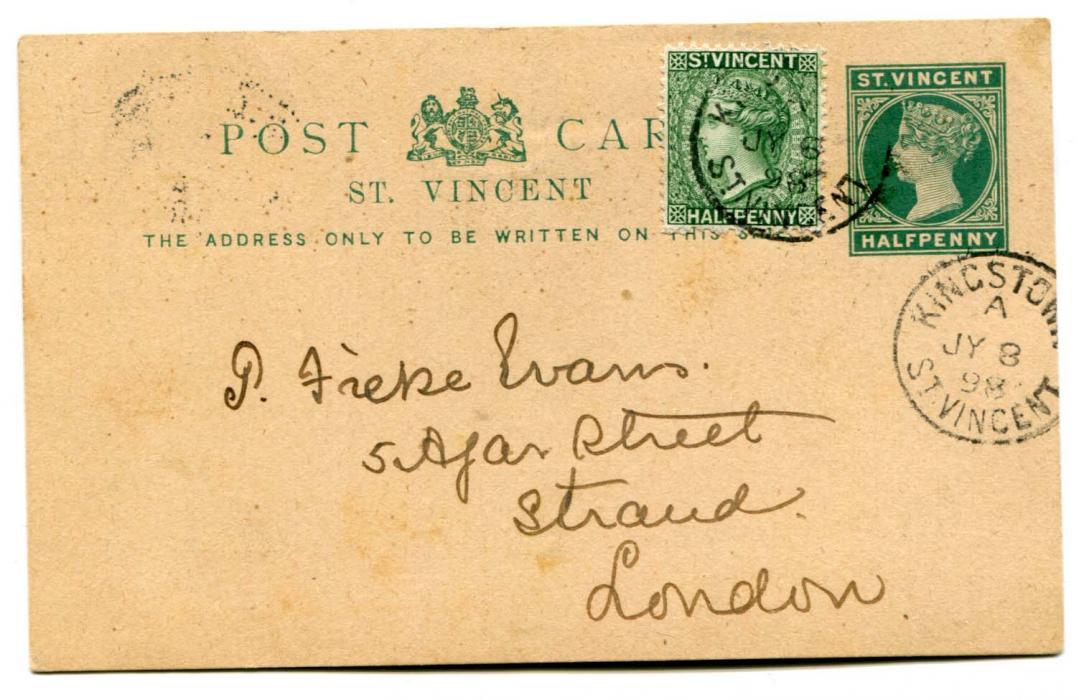 POST CAR
ST. VINCENT
THE ADDRESS ONLY TO BE WRITTEN ON THIS SI
ST VINCENT
HALFPENNY
ST. VINCENT
HALFPENNY
JY 8
98
ST. VINCENT
KINGSTOWN
A
JY 8
98
ST. VINCENT
P. Fieke Evans.
5 Agar Street
Strand.
London.